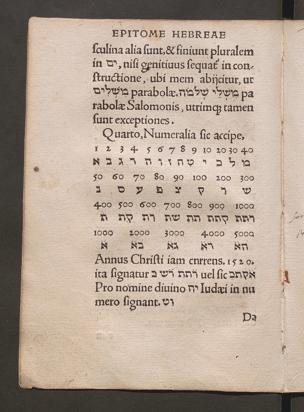 EPITOME HEBREAE
sculina alia sunt, & finiunt pluralem
in ים, nisi genitiuus sequat in con-
structione, ubi mem abijcitur, ut
משלים parabolæ. משלי שלמה pa
rabolæ Salomonis, utrimq; tamen
sunt exceptiones.
Quarto, Numeralia sic accipe,
1 2 3 4 5 6 7 8 9 10 20 30 40
א ב ג ד ה ו ז ח ט י כ ל מ
50 60 70 80 90 100 200 300
נ ס ע פ צ ק ר ש
400 500 600 700 800 900 1000
ת תק תר תש תת תתק
1000 2000 3000 4000 5000
א בא גא הא
Annus Christi iam cnrrens. 1520.
ita signatur uel sic
Pro nomine diuino יה Iudæi in nu
mero signant. טו
Da